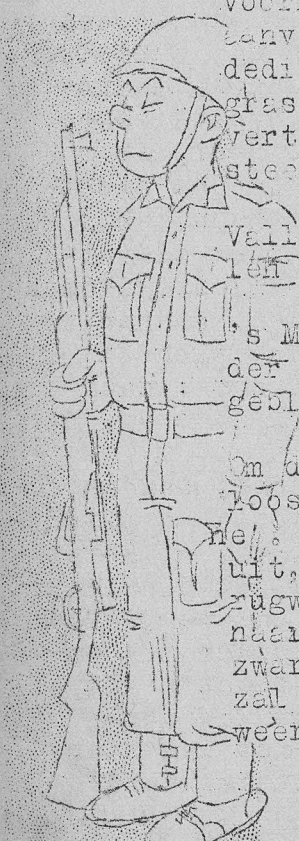 voor
aanv
dedi
gras
vert
stee
Vall
len
's M
der
gebl
Om d
loos
he.
uit,
rugw
naar
zwar
zal
weer